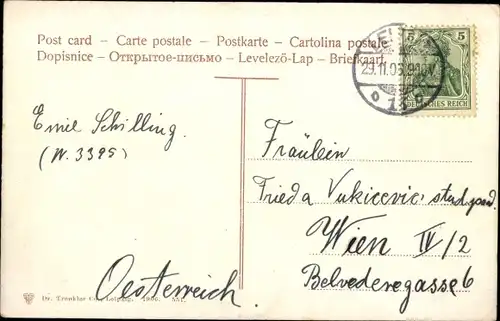 Post card - Carte postale - Postkarte - Cartolina postale
Dopisnice - Открытое-письмо - Levelező-Lap - Briefkaart
5 5
29.11.
DEUTSCHES REICH
Emil Schilling.
(W. 3395)
Fräulein
Frieda Vukicevic
Wien IV/2
Belvederegasse 6
Oesterreich
Dr. Trenkler Co., Leipzig. 1906.